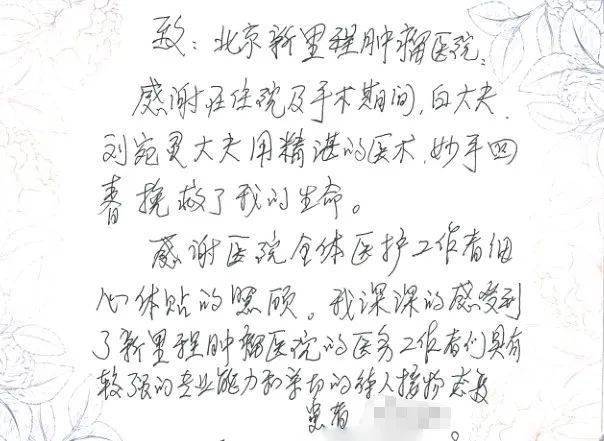 致：北京新里程肿瘤医院：
感谢在住院及手术期间，白大夫.
刘宛灵大夫用精湛的医术，妙手回
春挽救了我的生命。
感谢医院全体医护工作者细
心体贴的照顾。我深深的感受到
了新里程肿瘤医院的医务工作者们具有
较强的专业能力和亲切的待人接物态度
患者
。